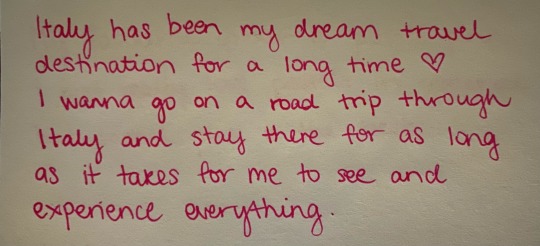 Italy has been my dream travel
destination for a long time ♡
I wanna go on a road trip through
Italy and stay there for as long
as it takes for me to see and
experience everything.